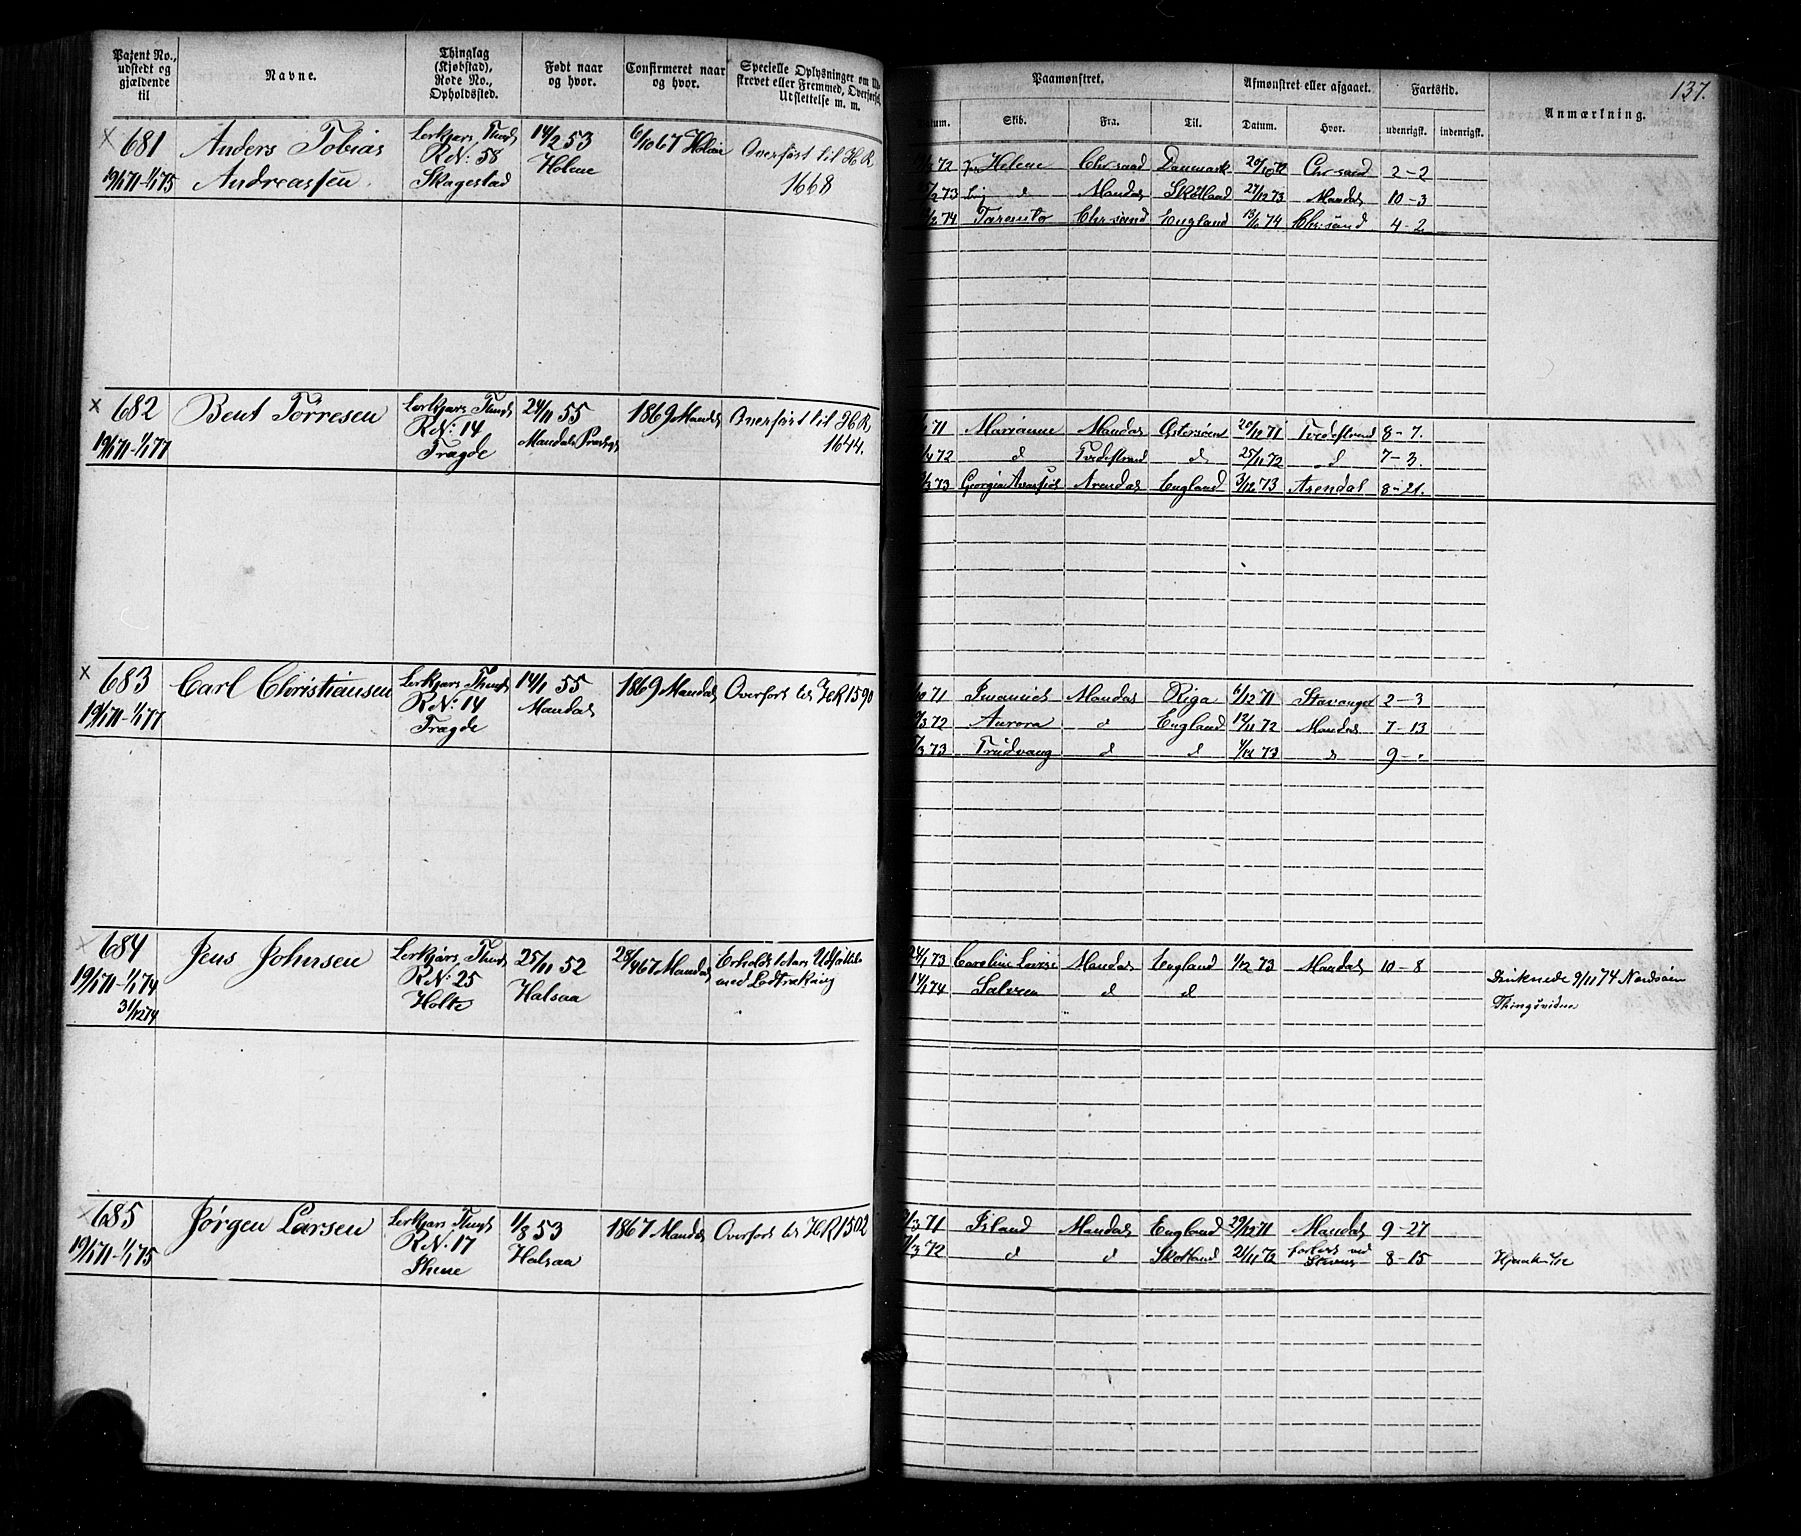 Patent No., udstedt og gjældende til
Navne.
Thinglag (Kjøbstad), Rode No., Opholdssted.
Født naar og hvor.
Confirmeret naar og hvor.
Specielle Oplysninger om Ud-
skrevet eller Fremmed, Overførsel,
Udslettelse m. m.
× 681 Anders Tobias 14/2 53 6/10 67 Holme Overført til H R
19/1 71-1/1 75 Andreassen. R.N: 58 Holme 1668
Skagestad
× 682 Bent Tørresen 24/11 55 1869 Mandal Overført til H R
19/1 71-1/1 77 R.N: 14 1644.
Tragde
× 683 Carl Christiansen 14/1 55 1869 Mandal Overført til HR 1590
19/1 71-1/1 77 R.N: 14 Mandal
Tragde
× 684 Jens Johnsen 25/11 52 28/4 67 Mandal
19/1 71-1/1 74 R.N: 25 Halsaa med Lodtrækning
31/12 74 Holte
× 685 Jørgen Larsen 1/8 53 1867 Mandal Overført til HR 1502
19/1 71-1/1 75 R.N: 17 Halsaa
137.
Paamønstret.
Afmønstret eller afgaaet.
Fartstid.
Anmærkning.
Datum. Skib. Fra. Til. Datum. Hvor. udenrigsk. indenrigsk.
72 Helene Chr.sand Danmark 72 Chr.sand 2-2
73 d Mandal Skotland 27/12 73 Mandal 10-3
74 Chr.sand England 74 Chr.sand 4-2
71 Marianne Mandal Østersøen 71 Tvedestrand 8-7.
72 d Tvedestrand d 25/11 72 d 7-3.
73 Georgia Arendal England 73 Arendal 8-21.
71 Mandal Riga 6/12 71 Stavanger 2-3
72 Aurora d England 12/11 72 Mandal 7-13
73 Trudvang d d 73 d 9-.
24/1 73 Caroline Lovise Mandal England 73 Mandal 10-8
14/1 74 d d
Druknede 9/11 74 Nordsøen
Thingsvidne
71 Island Mandal England 29/12 71 Mandal 9-27
72 d d Skotland 21/11 72 forlist ved 8-15